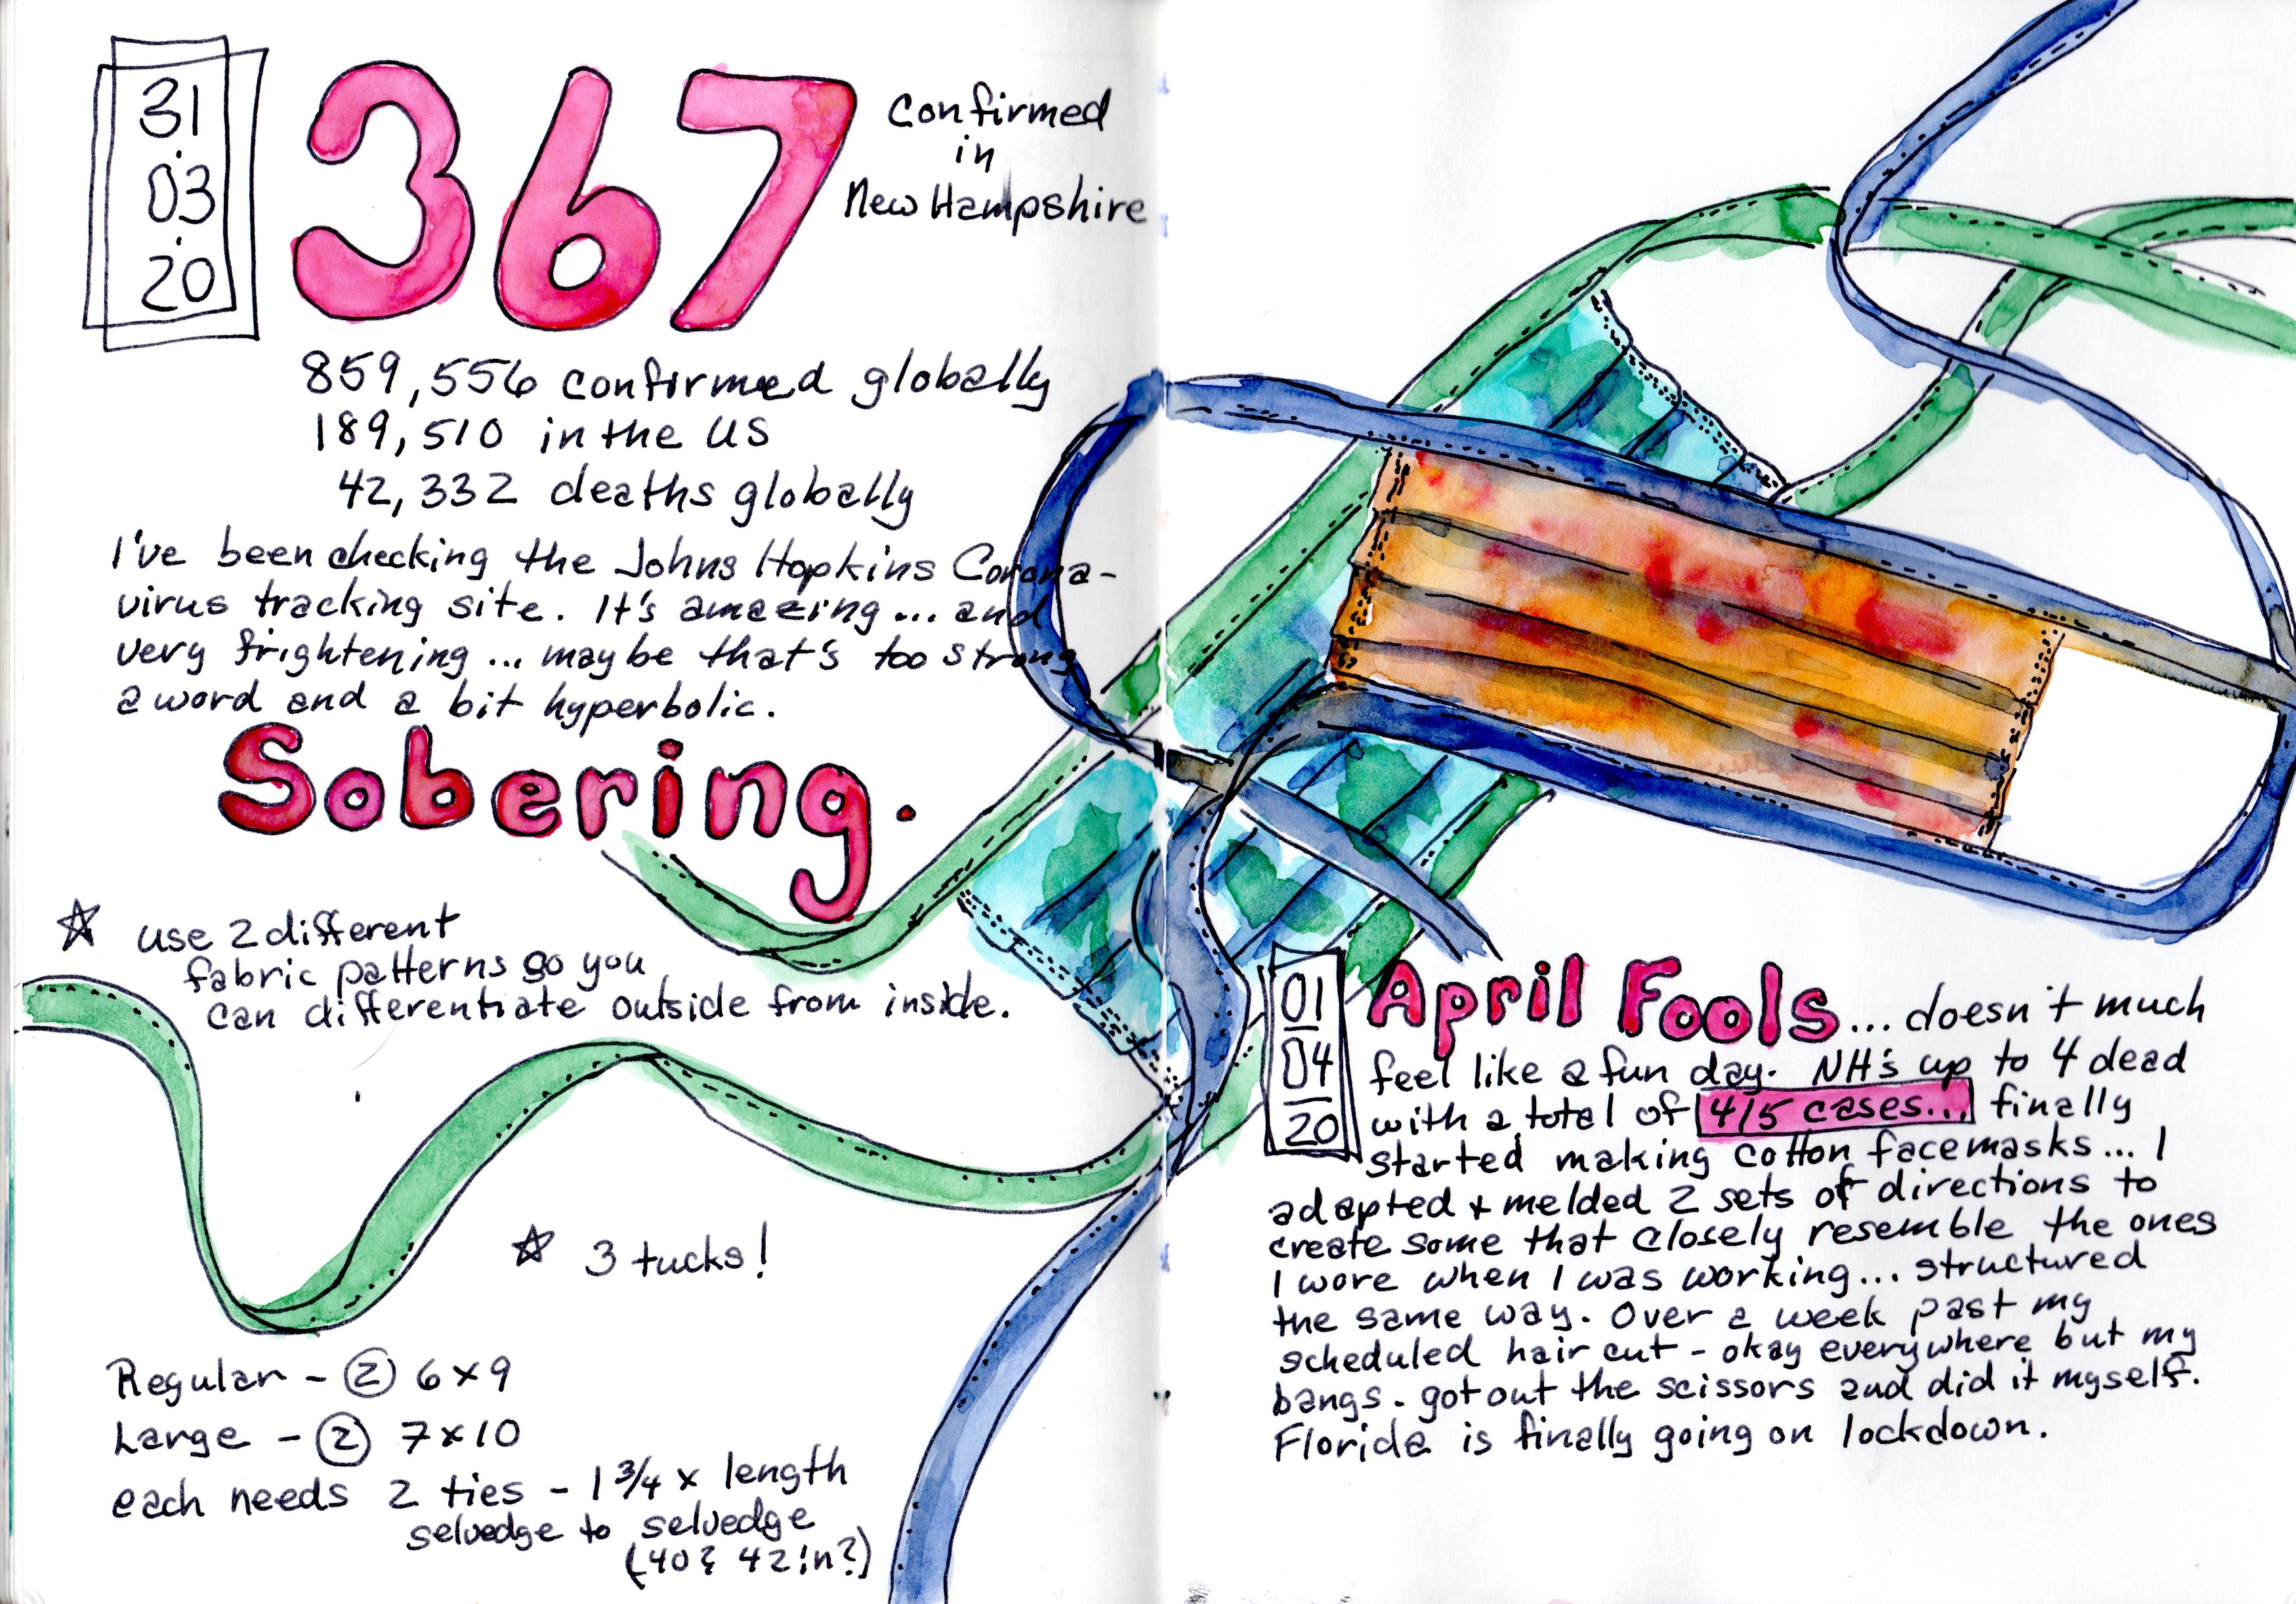 31
.
03
.
20
367
Confirmed
in
New Hampshire
859,556 confirmed globally
189,510 in the US
42,332 deaths globally
I've been checking the Johns Hopkins Corona-
virus tracking site. It's amazing... and
very frightening... maybe that's too strong
a word and a bit hyperbolic.
Sobering.
☆ use 2 different
fabric patterns so you
can differentiate outside from inside.
☆ 3 tucks!
Regular - ② 6x9
Large - ② 7x10
each needs 2 ties - 1 3/4 x length
selvedge to selvedge
(40 & 42 in?)
01
04
20
April Fools... doesn't much
feel like a fun day. NH's up to 4 dead
with a total of 415 cases... finally
started making cotton facemasks... I
adapted + melded 2 sets of directions to
create some that closely resemble the ones
I wore when I was working... structured
the same way. Over a week past my
scheduled hair cut - okay everywhere but my
bangs. got out the scissors and did it myself.
Florida is finally going on lockdown.